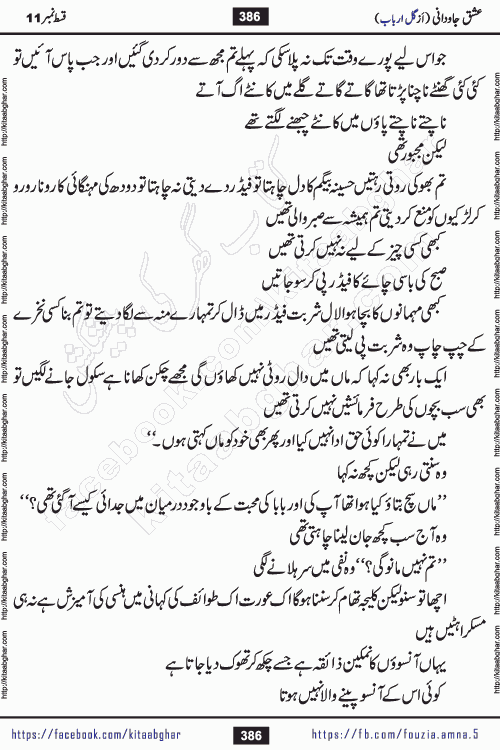 عشق جاودانی (از گل ارباب)
386
قسط نمبر 11
جو اس لیے پورے وقت تک نہ پلا سکی کہ پہلے تم مجھ سے دور کر دی گئیں اور جب پاس آئیں تو
کئی کئی گھنٹے ناچنا پڑتا تھا گاتے گاتے گلے میں کانٹے اگ آتے
ناچتے ناچتے پاؤں میں کانٹے چبھنے لگتے تھے
لیکن مجبور تھی
تم بھوکی روتی رہتیں حسینہ بیگم کا دل چاہتا تو فیڈر دے دیتی نہ چاہتا تو دودھ کی مہنگائی کا رونا رو رو
کر لڑکیوں کو منع کر دیتی تم ہمیشہ سے صبر والی تھیں
کبھی کسی چیز کے لیے نہ نہیں کرتی تھیں
صبح کی باسی چائے کا فیڈر پی کر سو جاتیں
کبھی مہمانوں کا بچا ہوا لال شربت فیڈر میں ڈال کر تمہارے منہ سے لگا دیتے تو تم بنا کسی نخرے
کے چپ چاپ وہ شربت پی لیتی تھیں
ایک بار بھی نہ کہا کہ ماں میں دال روٹی نہیں کھاؤں گی مجھے چکن کھانا ہے سکول جانے لگیں تو
بھی سب بچوں کی طرح فرمائشیں نہیں کرتی تھیں
میں نے تمہارا کوئی حق ادا نہیں کیا اور پھر بھی خود کو ماں کہتی ہوں۔‘‘
وہ سنتی رہی لیکن کچھ نہ کہا
’’ماں سچ بتاؤ کیا ہوا تھا آپ کی اور بابا کی محبت کے باوجود درمیان میں جدائی کیسے آ گئی تھی؟‘‘
وہ آج سب کچھ جان لینا چاہتی تھی
’’تم نہیں مانو گی؟‘‘ وہ نفی میں سر ہلانے لگی
اچھا تو سنو لیکن کلیجہ تھام کر سننا ہوگا اک عورت اک طوائف کی کہانی میں ہنسی کی آمیزش ہے نہ ہی
مسکراہٹیں ہیں
یہاں آنسوؤں کا نمکین ذائقہ ہے جسے چکھ کر تھوک دیا جاتا ہے
کوئی اس کے آنسو پینے والا نہیں ہوتا
https://facebook.com/kitaabghar
386
https://fb.com/fouzia.amna.5
http://kitaabghar.com
کتاب گھر کی پیشکش
facebook.com/kitaabghar
kitaabghar.com